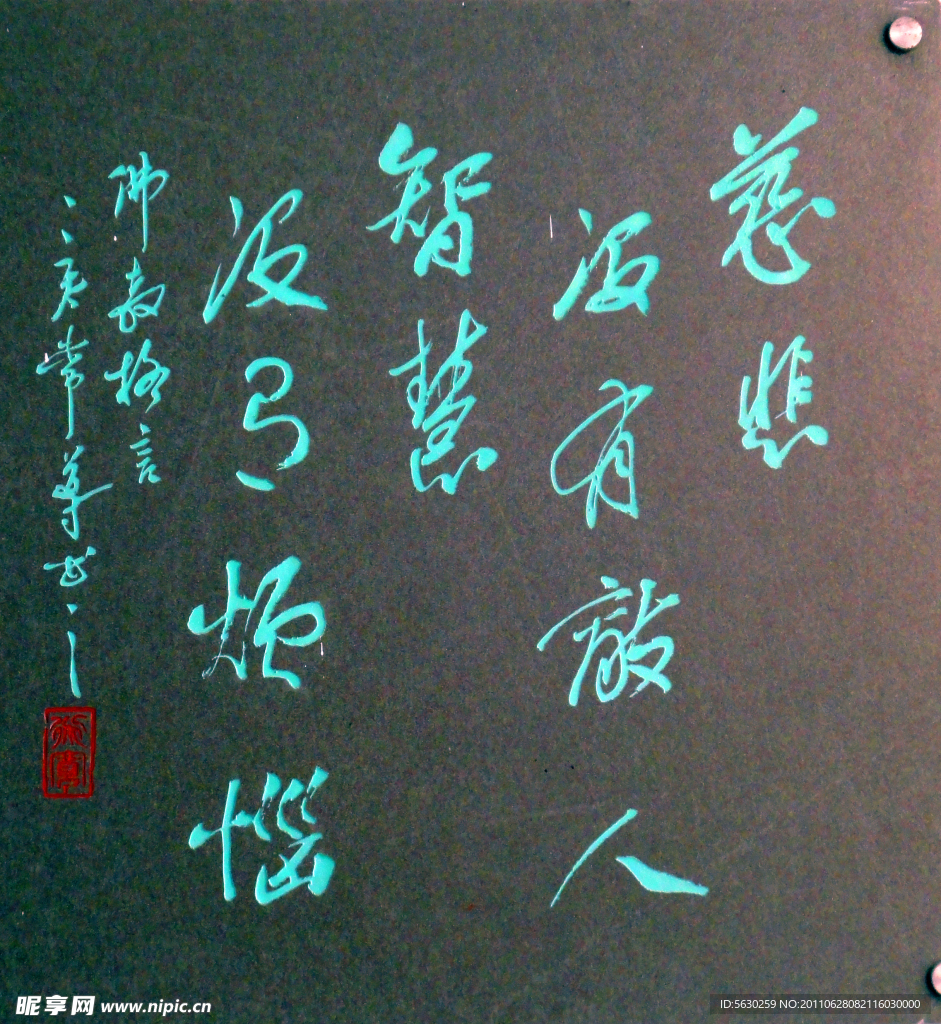 慈悲
没有敌人
智慧
没有烦恼
佛教格言
常尊书
昵享网 www.nipic.cn
ID:5630259 NO:20110628082116030000